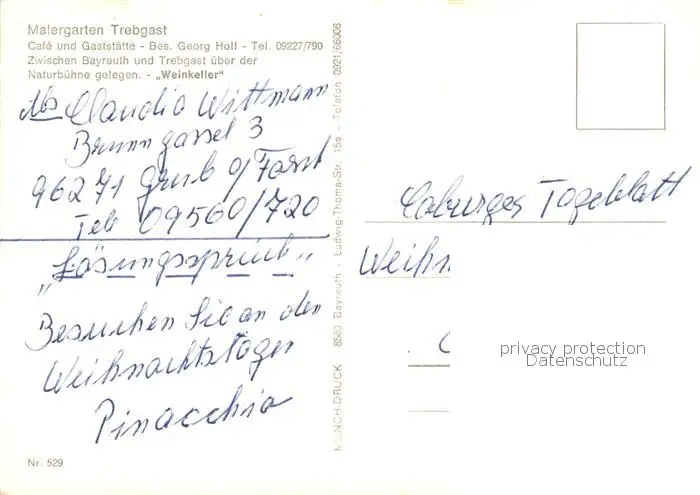 Malergarten Trebgast
Café und Gaststätte - Bes. Georg Holl - Tel. 09227/790
Zwischen Bayreuth und Trebgast über der
Naturbühne gelegen. - „Weinkeller"
Abs Claudia Wittmann
Brunngassel 3
96271 Grub a/Forst
Tel 09560/720
„Lösungsspruch"
Besuchen Sie an den
Weihnachtstagen
Pinacchio
Nr. 529
MÜNCH-DRUCK 8580 Bayreuth · Ludwig-Thoma-Str. 15a - Telefon 0921/66006
Coburger Tageblatt
Weihn
privacy protection
Datenschutz